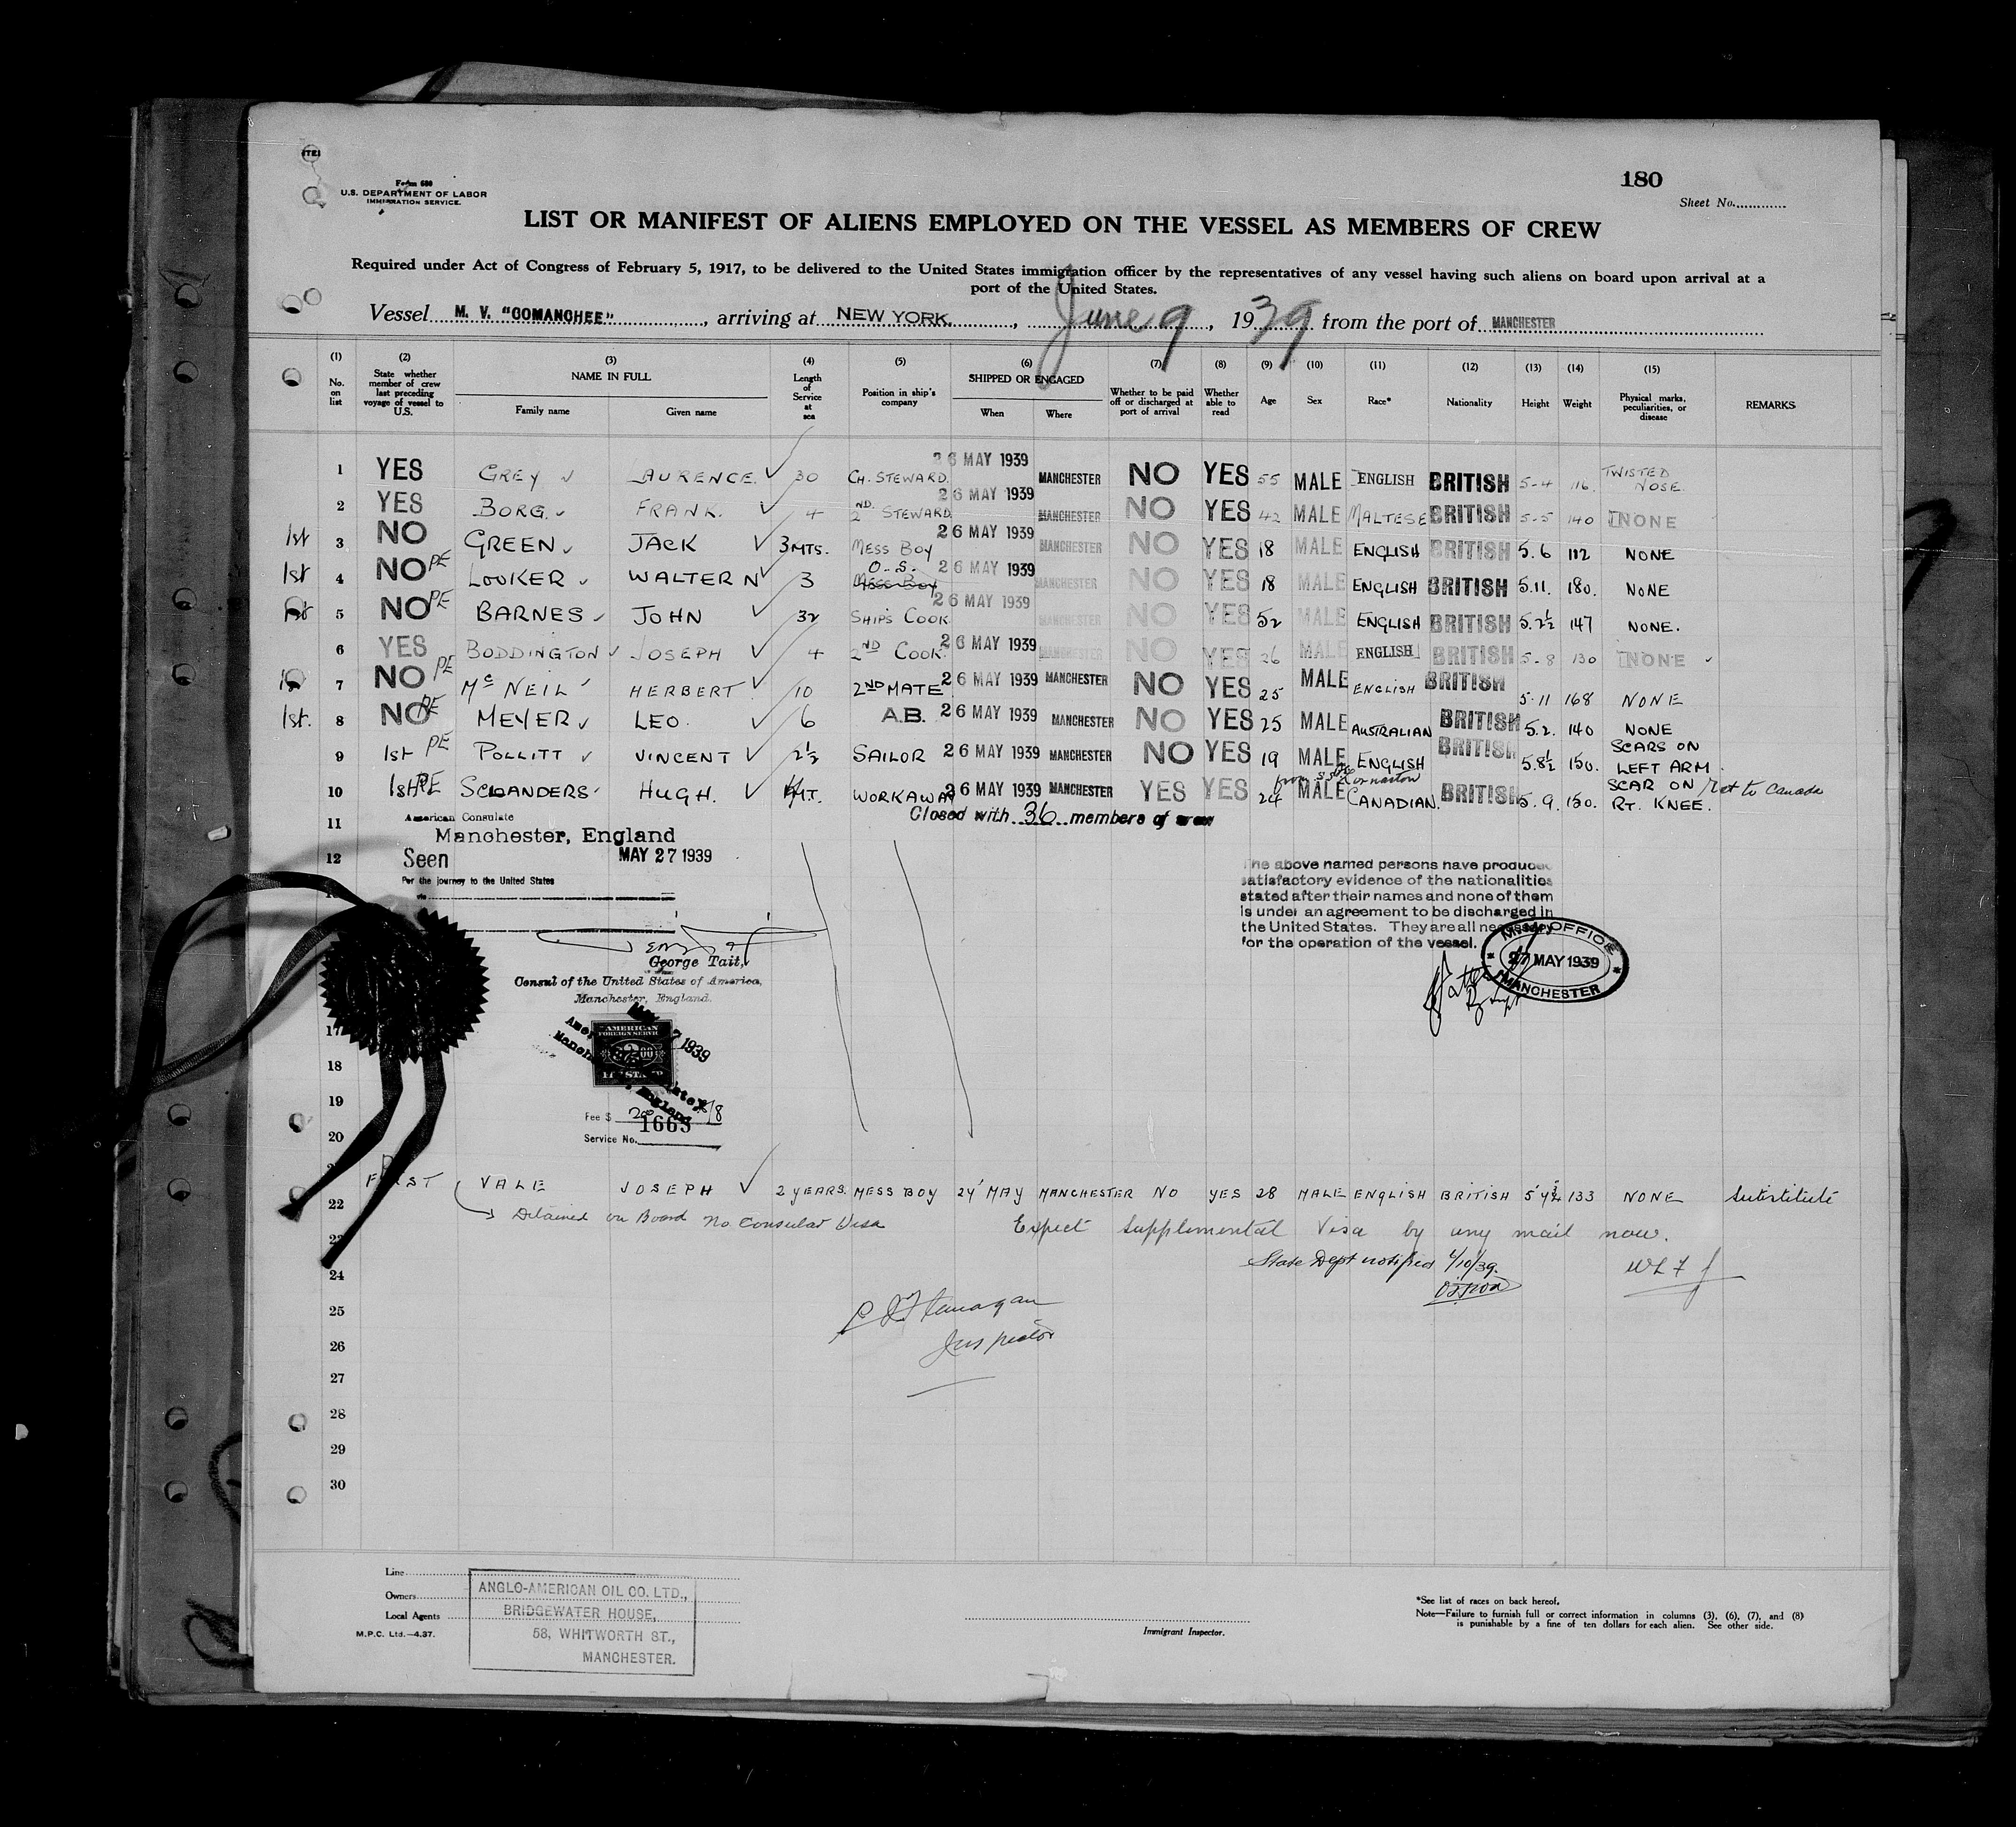 Form 680
U.S. DEPARTMENT OF LABOR
IMMIGRATION SERVICE.
180
Sheet No.
LIST OR MANIFEST OF ALIENS EMPLOYED ON THE VESSEL AS MEMBERS OF CREW
Required under Act of Congress of February 5, 1917, to be delivered to the United States immigration officer by the representatives of any vessel having such aliens on board upon arrival at a
port of the United States.
Vessel M. V. "COMANCHEE", arriving at NEW YORK, June 9, 1939 from the port of MANCHESTER
(1) No. on list (2) State whether member of crew last preceding voyage of vessel to U.S. (3) NAME IN FULL Family name Given name (4) Length of Service at sea (5) Position in ship's company (6) SHIPPED OR ENGAGED When Where (7) Whether to be paid off or discharged at port of arrival (8) Whether able to read (9) Age (10) Sex (11) Race* (12) Nationality (13) Height (14) Weight (15) Physical marks, peculiarities, or disease REMARKS
1 YES GREY LAURENCE. 30 CH. STEWARD. 26 MAY 1939 MANCHESTER NO YES 55 MALE ENGLISH BRITISH 5-4 116 TWISTED NOSE.
2 YES BORG. FRANK. 4 2ND. STEWARD 26 MAY 1939 MANCHESTER NO YES 42 MALE MALTESE BRITISH 5-5 140 NONE
1st 3 NO GREEN JACK 3 MTS. MESS BOY 26 MAY 1939 MANCHESTER NO YES 18 MALE ENGLISH BRITISH 5.6 112 NONE
1st 4 NO PE LOOKER WALTER N 3 O.S. MESS BOY 26 MAY 1939 MANCHESTER NO YES 18 MALE ENGLISH BRITISH 5.11. 180. NONE
1st 5 NO PE BARNES JOHN 32 SHIPS COOK. 26 MAY 1939 MANCHESTER NO YES 52 MALE ENGLISH BRITISH 5.2½ 147 NONE.
6 YES BODDINGTON JOSEPH 4 2ND COOK. 26 MAY 1939 MANCHESTER NO YES 26 MALE ENGLISH BRITISH 5-8 130 NONE
7 NO PE McNEIL HERBERT 10 2ND MATE 26 MAY 1939 MANCHESTER NO YES 25 MALE ENGLISH BRITISH 5-11 168 NONE
1st. 8 NO PE MEYER LEO. 6 A.B. 26 MAY 1939 MANCHESTER NO YES 25 MALE AUSTRALIAN BRITISH 5.2. 140 NONE
9 1st PE POLLITT VINCENT 2½ SAILOR 26 MAY 1939 MANCHESTER NO YES 19 MALE ENGLISH BRITISH 5.8½ 150. SCARS ON LEFT ARM.
10 1st PE HUGH. WORKAWAY 26 MAY 1939 MANCHESTER YES YES 24 MALE CANADIAN. BRITISH 5.9. 150. SCAR ON RT. KNEE. to Canada
11 Closed with 36 members of crew
American Consulate
Manchester, England
12 Seen MAY 27 1939
For the journey to the United States
via
The above named persons have produced
satisfactory evidence of the nationalities
stated after their names and none of them
is under an agreement to be discharged in
the United States. They are all necessary
for the operation of the vessel.
OFFICE
27 MAY 1939
MANCHESTER
George Tait,
Consul of the United States of America,
Manchester, England.
17
AMERICAN
FOREIGN SERVICE
1939
18
19
Fee $
1663
20 Service No.
22 FIRST VALE JOSEPH 2 YEARS. MESS BOY 27 MAY MANCHESTER NO YES 28 MALE ENGLISH BRITISH 133 NONE Substitute
Detained on Board No Consular Visa Expect Supplemental Visa by any mail now.
State Dept notified 6/10/39.
24
25
Inspector
26
27
28
29
30
Line
Owners
Local Agents
ANGLO-AMERICAN OIL CO. LTD.,
BRIDGEWATER HOUSE,
58, WHITWORTH ST.,
MANCHESTER.
M.P.C. Ltd.—4.37.
Immigrant Inspector.
*See list of races on back hereof.
Note—Failure to furnish full or correct information in columns (3), (6), (7), and (8)
is punishable by a fine of ten dollars for each alien. See other side.